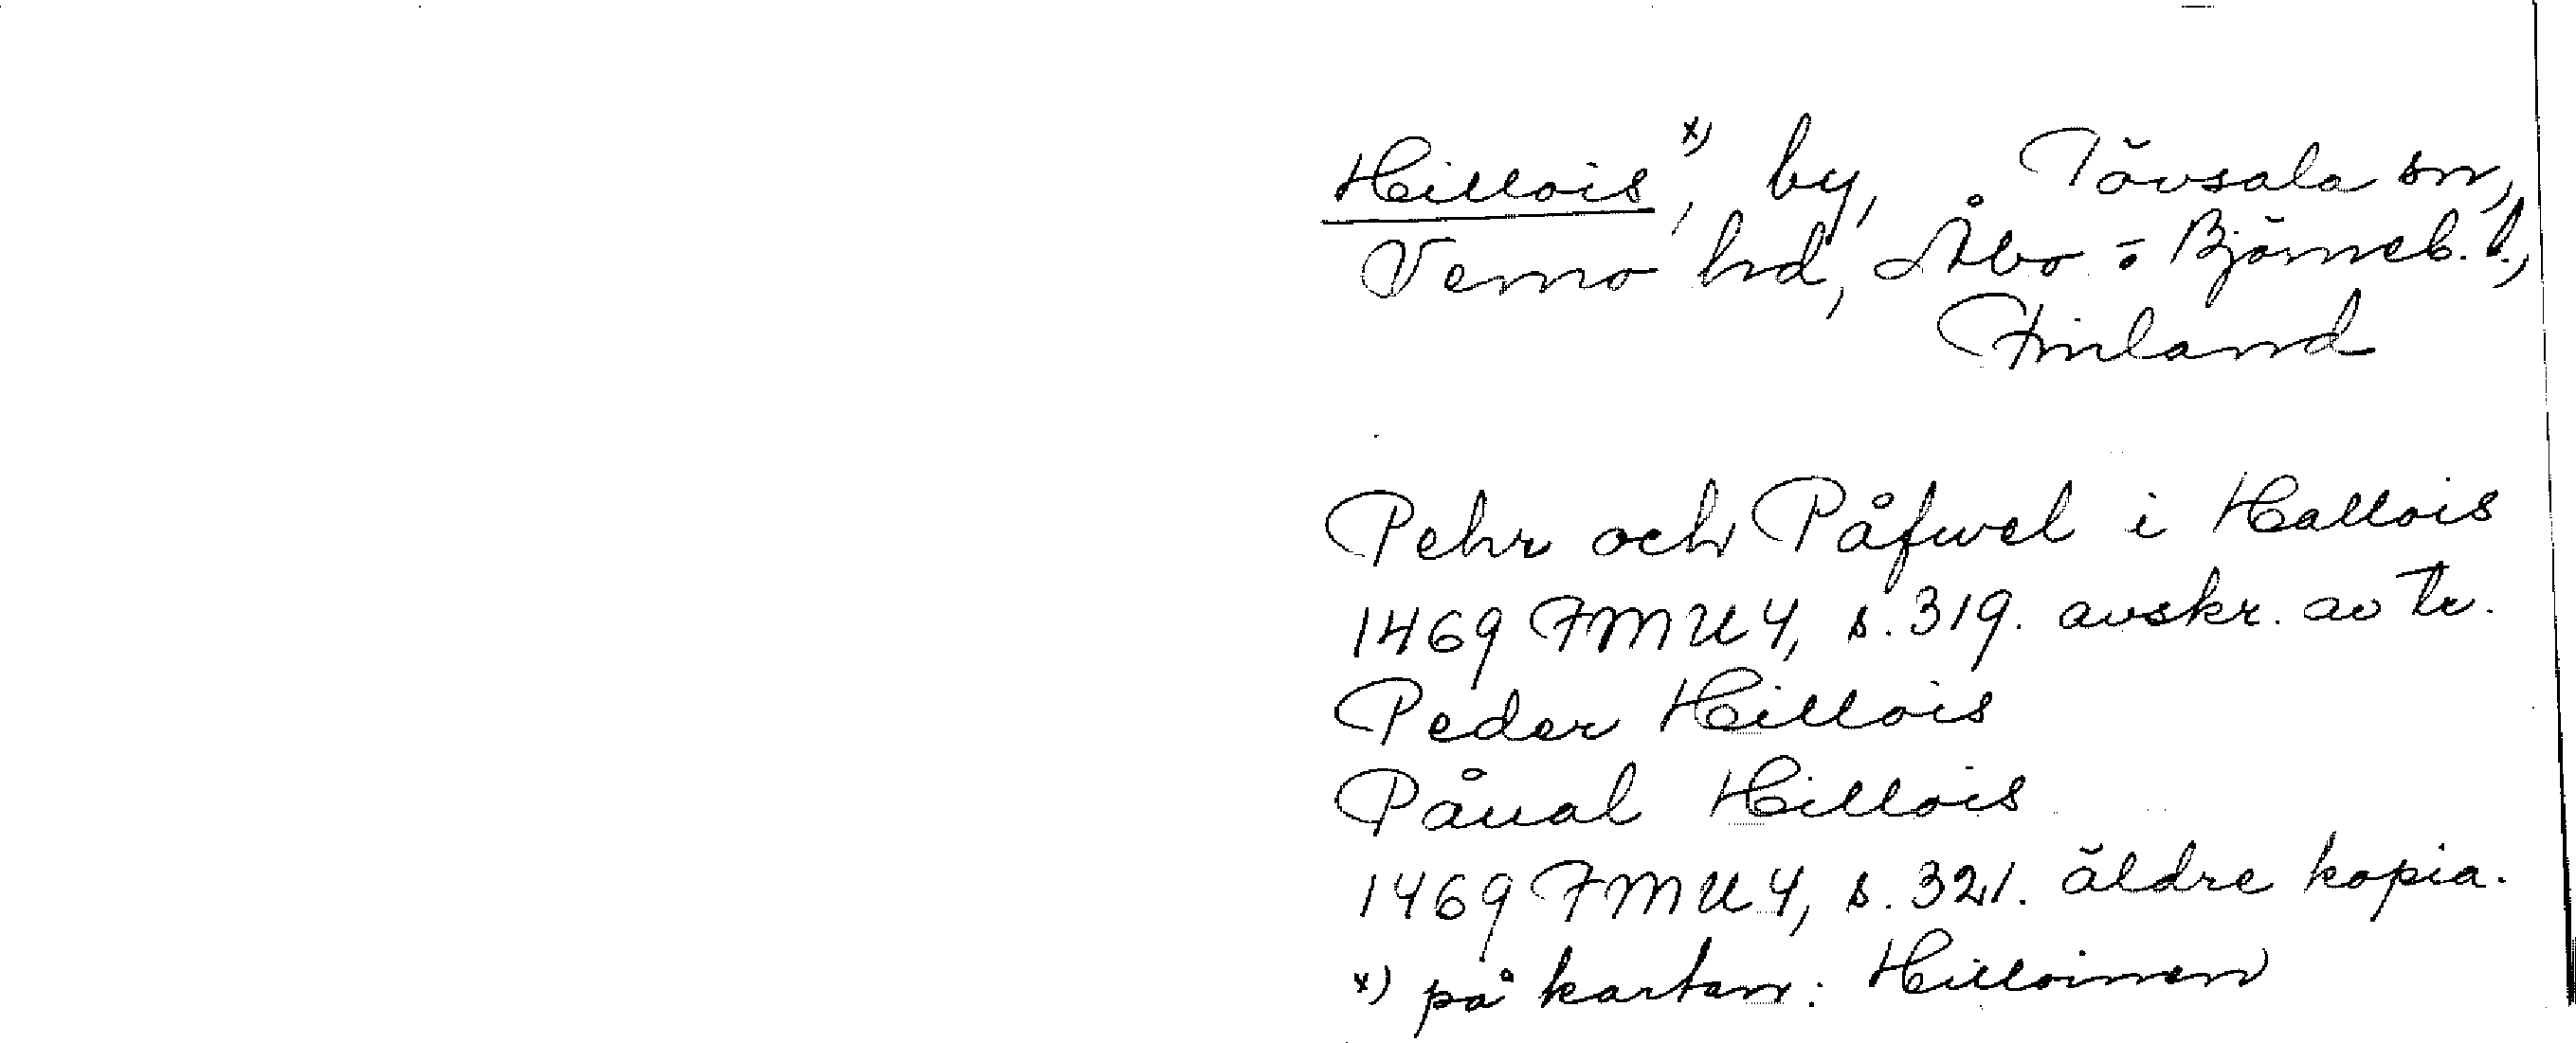 Hillois x), by, Tövsala sn,
Vemo hd, Åbo-Björneb. l.,
Finland
Pehr och Påfwel i Hallois
1469 FMU 4, s. 319. avskr. av tr.
Peder Hillois
Påual Hillois
1469 FMU 4, s. 321. äldre kopia.
x) på kartan: Hilloinen